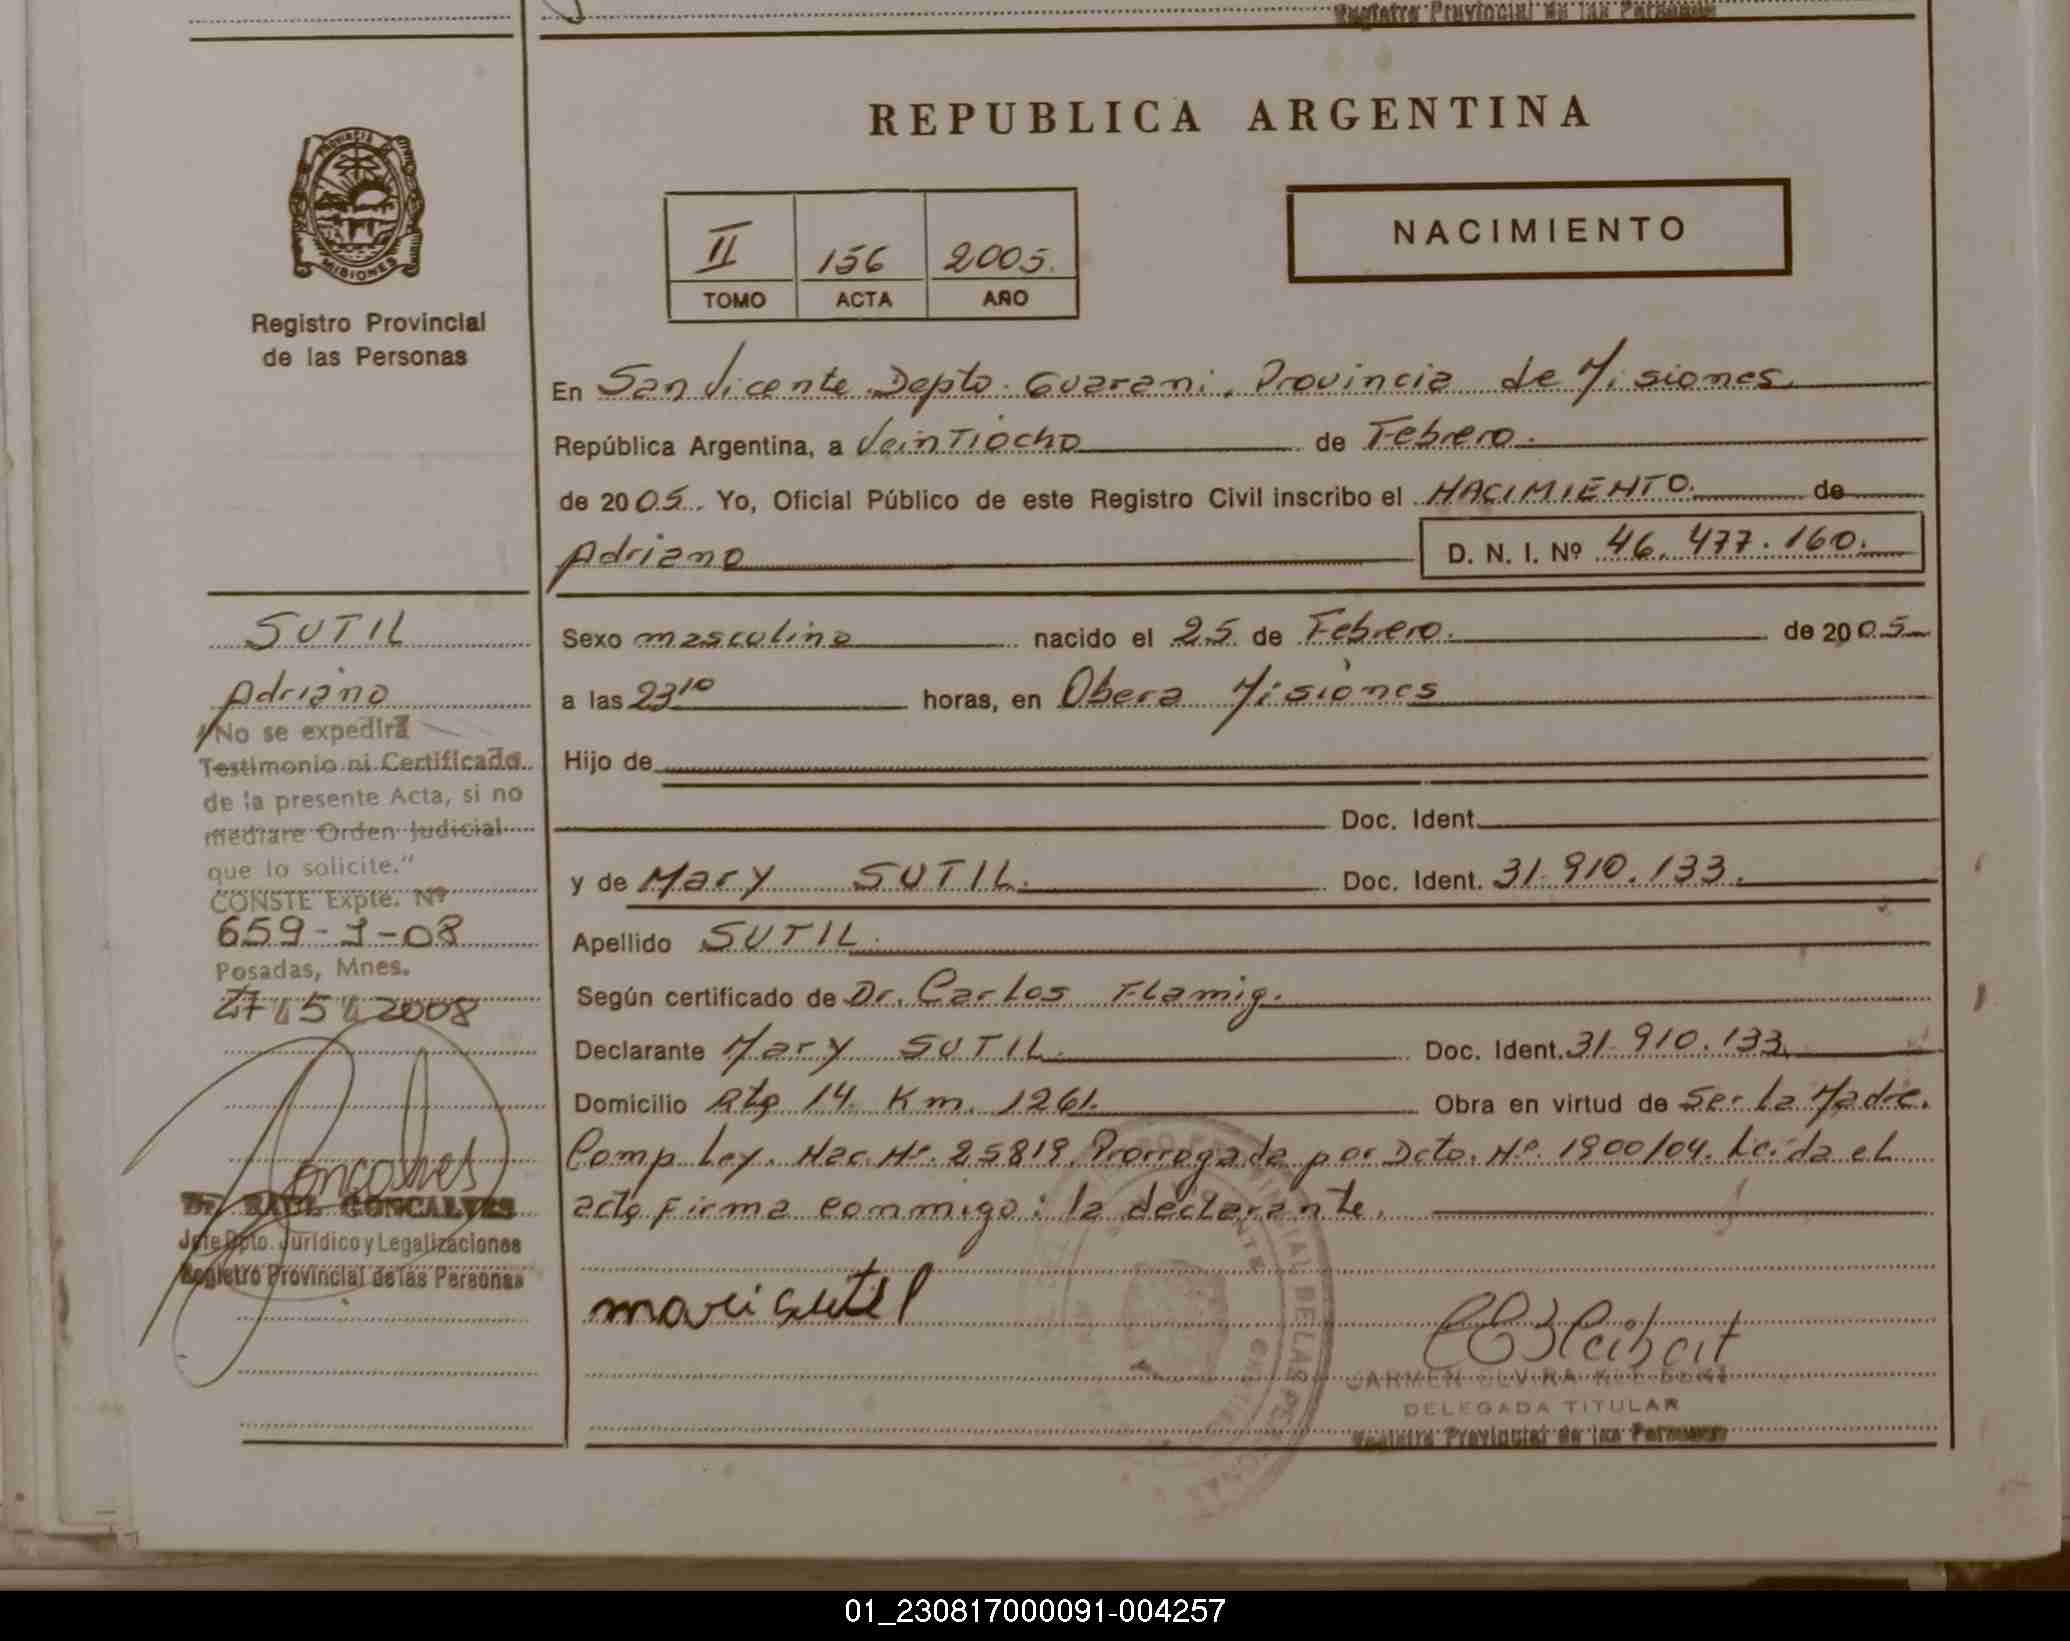 Registro Provincial de las Personas
REPUBLICA ARGENTINA
PROVINCIA DE
MISIONES
Registro Provincial
de las Personas
II 156 2005.
TOMO ACTA AÑO
NACIMIENTO
En San Vicente Depto. Guarani, Provincia de Misiones.
República Argentina, a VeinTiocho de Febrero.
de 2005. Yo, Oficial Público de este Registro Civil inscribo el NACIMIENTO. de
Adriano D. N. I. Nº 46.477.160.
Sexo masculino nacido el 25 de Febrero. de 2005
a las 23¹⁰ horas, en Obera Misiones
Hijo de
Doc. Ident.
y de Mary SUTIL. Doc. Ident. 31.910.133.
Apellido SUTIL.
Según certificado de Dr. Carlos Flamig.
Declarante Mary SUTIL. Doc. Ident. 31.910.133.
Domicilio Rta 14. Km. 1261. Obra en virtud de Ser La Madre.
Comp. Ley. Nac. Nº. 25819. Prorrogada por Dcto. Nº. 1900/04. Leida el
acta firma conmigo: la declarante.
mari sutil
CARMEN ELVIRA
DELEGADA TITULAR
Registro Provincial de las Personas
SUTIL
Adriano
"No se expedirá
Testimonio ni Certificado
de la presente Acta, si no
mediare Orden Judicial
que lo solicite."
CONSTE Expte. Nº
659-J-08
Posadas, Mnes.
27 5 2008
Goncalves
Dr. RAUL GONCALVES
Jefe Dpto. Jurídico y Legalizaciones
Registro Provincial de las Personas
01_230817000091-004257